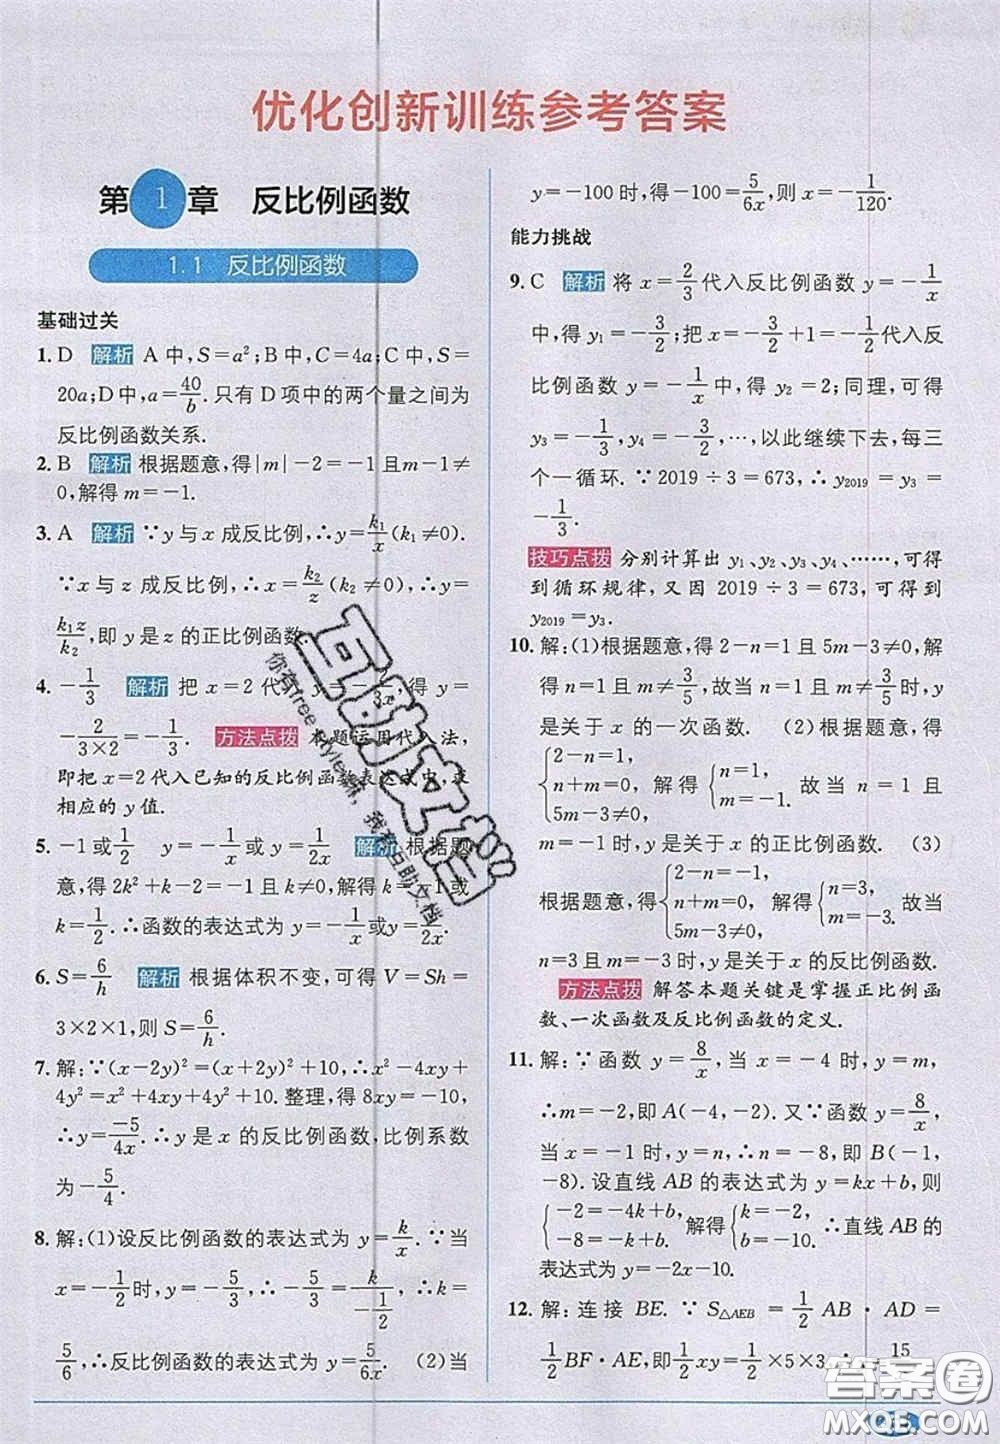 优化创新训练参考答案
第1章 反比例函数
1.1 反比例函数
基础过关
1. D 解析 A 中，S=a²；B 中，C=4a；C 中，S=
20a；D 中，a=40/b. 只有 D 项中的两个量之间为
反比例函数关系.
2. B 解析 根据题意，得|m|-2=-1 且 m-1≠
0，解得 m=-1.
3. A 解析 ∵y 与 x 成反比例，∴y=k₁/x(k₁≠0).
∵x 与 z 成反比例，∴x=k₂/z(k₂≠0)，∴y=
k₁z/k₂，即 y 是 z 的正比例函数.
4. -1/3 解析 把 x=2 代 y 3x，得 y=
-2/(3×2)=-1/3. 方法点拨 本题运用代入法，
即把 x=2 代入已知的反比例函数表达式中，求
相应的 y 值.
5. -1 或 1/2 y=-1/x 或 y=1/2x 解析 根据题
意，得 2k²+k-2=-1 且 k≠0，解得 k=-1 或
k=1/2. ∴函数的表达式为 y=-1/x 或 y=1/2x.
6. S=6/h 解析 根据体积不变，可得 V=Sh=
3×2×1，则 S=6/h.
7. 解：∵(x-2y)²=(x+2y)²+10，∴x²-4xy+
4y²=x²+4xy+4y²+10. 整理，得 8xy=-10，
∴y=-5/4x. ∴y 是 x 的反比例函数，比例系数
为-5/4.
8. 解：(1)设反比例函数的表达式为 y=k/x. ∵当
x=-1/2时，y=-5/3，∴-5/3=k/(-1/2)，∴k=
5/6，∴反比例函数的表达式为 y=5/6x. (2)当
y=-100 时，得-100=5/6x，则 x=-1/120.
能力挑战
9. C 解析 将 x=2/3代入反比例函数 y=-1/x
中，得 y₁=-3/2；把 x=-3/2+1=-1/2代入反
比例函数 y=-1/x中，得 y₂=2；同理，可得
y₃=-1/3，y₄=-3/2，…，以此继续下去，每三
个一循环. ∵2019÷3=673，∴y₂₀₁₉=y₃=
-1/3.
技巧点拨 分别计算出 y₁、y₂、y₃、y₄、……，可得
到循环规律，又因 2019÷3=673，可得到
y₂₀₁₉=y₃.
10. 解：(1)根据题意，得 2-n=1 且 5m-3≠0，解
得 n=1 且 m≠3/5，故当 n=1 且 m≠3/5时，y
是关于 x 的一次函数. (2)根据题意，得
{2-n=1, n+m=0, 5m-3≠0, 解得 {n=1, m=-1. 故当 n=1 且
m=-1 时，y 是关于 x 的正比例函数. (3)
根据题意，得{2-n=-1, n+m=0, 5m-3≠0, 解得{n=3, m=-3. 故当
n=3 且 m=-3 时，y 是关于 x 的反比例函数.
方法点拨 解答本题关键是掌握正比例函
数、一次函数及反比例函数的定义.
11. 解：∵函数 y=8/x，当 x=-4 时，y=m，
∴m=-2，即 A(-4，-2). 又∵函数 y=8/x，
当 x=-1 时，y=n，∴n=-8，即 B(-1，
-8). 设直线 AB 的表达式为 y=kx+b，则
{-2=-4k+b, -8=-k+b, 解得{k=-2, b=-10. ∴直线 AB 的
表达式为 y=-2x-10.
12. 解：连接 BE. ∵S△AEB=1/2AB·AD=
1/2BF·AE，即1/2xy=1/2×5×3，∴y=15
互助文档
你有free style嘛，我有互助文档
答案圈
MXQE.COM